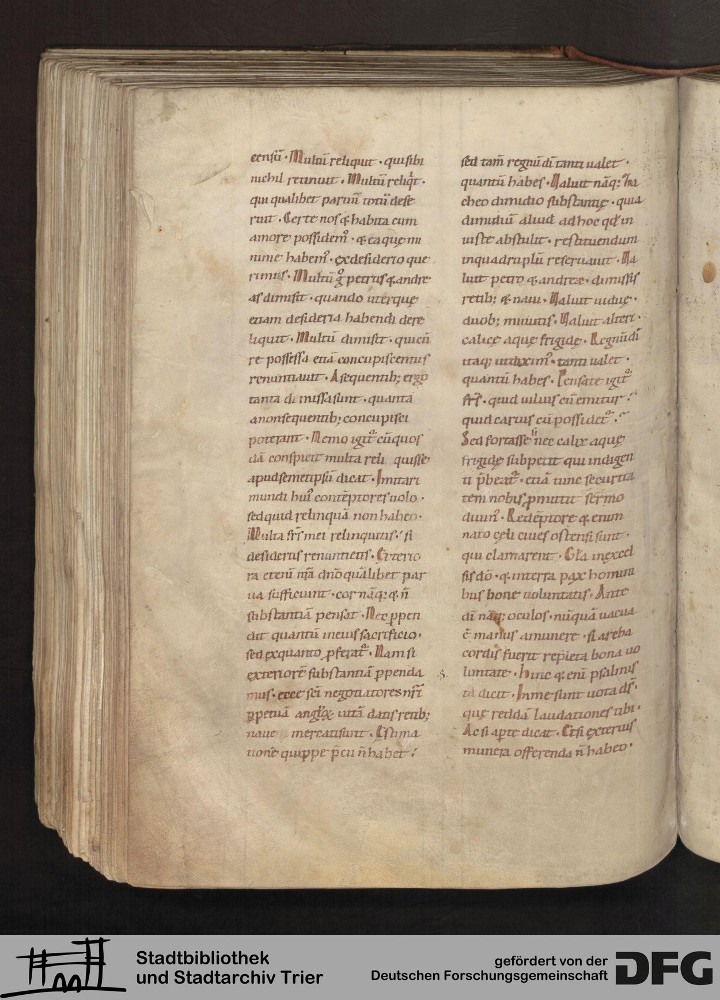 censū · Multū reliquit · qui sibi
nichil retinuit · Multū reliq̇t ·
qui quālibet parvū totū dese
ruit · Certe nos & habita cum
amore possidem᷒ · & ea que mi
nime habem᷒ · ex desiderio que
rimus · Multū g̊ petrus & andre
as dimisit · quando uterque
etiam desideria habendi dere
liquit · Multū dimisit · qui cū
re possessa etiā concupiscentiis
renuntiauit · A sequentib; ergo
tanta dimissa sunt · quanta
a non sequentib; concupisci
poterant · Nemo igit᷑ cū quos
dā conspicit multa reliquisse
apud semetipsū dicat · Imitari
mundi hui᷒ contēptores uolo ·
sed quid relinquā non habeo ·
Multa frs̄ mei relinquitis · si
desideriis renuntietis · Exterio
ra etenī nr̄a dn̄o quālibet par
ua sufficiunt · cor nāq; & n̄
substantiā pensat · Nec ꝑpen
dit quantū in eius sacrificio ·
sed ex quanto ꝓferat᷑ · Nam si
exteriorē substantiā ꝑpenda
mus · ecce sc̄i negotiatores nr̄i
ꝑpetuā anglꝝ uitā datis retib;
naue mercati sunt · Estima
tionē quippe p̄cii n̄ habet :
sed tam̄ regnū dī tanti ualet ·
quantū habes · Valuit nāq; Za
cheo dimidio substantię · quia
dimidiū aliud ad hoc qd̄ in
iuste abstulit · restituendum
in quadruplū reseruauit · Va
luit petro & andreæ · dimissis
retib; & naui · Valuit uidue ·
duob; minutis · Valuit alteri ·
calice aque frigide · Regnū dī
itaq; ut dixim᷒ · tanti ualet ·
quantū habes · Pensate igit᷑
frs̄ · quid uilius cū emitur ·
quid carius cū possidet᷑ ·
Sed fortasse nec calix aquę
frigidę subpetit qui indigen
ti p̄beat᷑ · etiā tunc securita
tem nobis ꝓmittit sermo
diuin᷒ · Redēptore & enim
nato cęli ciues ostensi sunt ·
qui clamarent · Gl̄a in excel
sis dō · & in terra pax homini
bus bonę uoluntatis · Ante
dī nāq; oculos · nūquā uacua
ē manus a munere · si archa
cordis fuerit repleta bona uo
luntate · Hinc & enī psalmis
ta dicit · In me sunt uota ds̄ ·
quę reddā laudationes tibi ·
Ac si aꝑte dicat · Etsi exterius
munera offerenda n̄ habeo ·
Stadtbibliothek
und Stadtarchiv Trier
gefördert von der
Deutschen Forschungsgemeinschaft
DFG